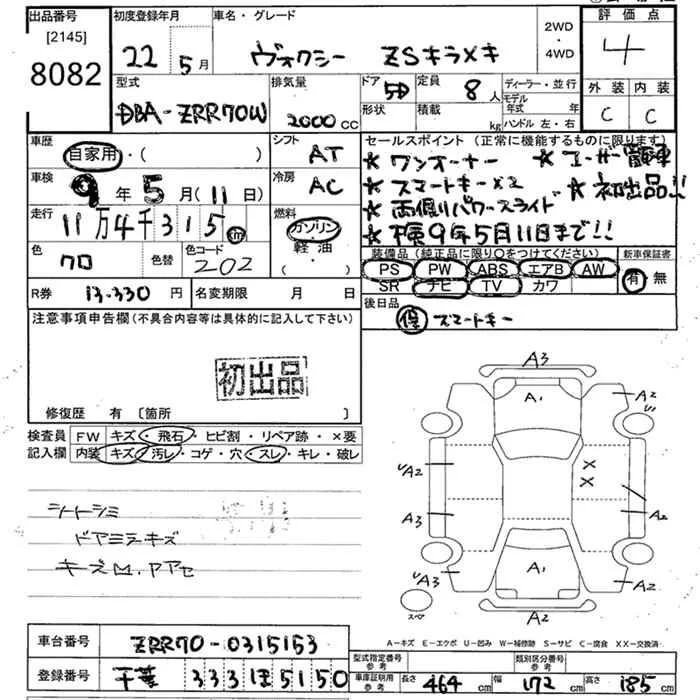 出品番号 初度登録年月 車名・グレード 2WD・4WD 評価点
[2145] 8082 22 5月 ヴォクシー ZSキラメキ 4
型式 排気量 ドア 定員 ディーラー・並行 外装 内装
DBA-ZRR70W 2000cc 5D 8人 モデル年式 年 C C
形状 積載 kg ハンドル 左・右
車歴 シフト セールスポイント (正常に機能するものに限ります)
自家用・( ) AT ★ワンオーナー ★ユーザー買取車
車検 冷房 ★スマートキーx2 ★初出品!!
9年5月(11日) AC ★両側パワースライド
走行 燃料 ★車検9年5月11日まで!!
11万4千315km ガソリン・軽油・( )
色 色替 色コード 装備品 (純正品に限り○をつけてください) 新車保証書
クロ 202 PS PW ABS エアB AW 有・無
SR ナビ TV カワ
R券 13.330円 名変期限 月 日 後日品
保 スマートキー
注意事項申告欄 (不具合内容等は具体的に記入して下さい)
初出品
修復歴 有 [箇所 ]
検査員記入欄 FW キズ・飛石・ヒビ割・リペア跡・×要
内装 キズ・汚レ・コゲ・穴・スレ・キレ・破レ
シートシミ
ドアミラーキズ
キズM.アアセ
A3
A1 A2
UA2 X X
A3 A2
UA3 A1 A2
スペア A2
A-キズ E-エクボ U-凹み W-補修跡 S-サビ C-腐食 XX-交換済
車台番号 ZRR70-0315153 型式指定番号 参考 類別区分番号 参考
登録番号 千葉 333 ほ 5150 車庫証明用 参考 長さ 464cm 幅 172cm 高さ 185cm